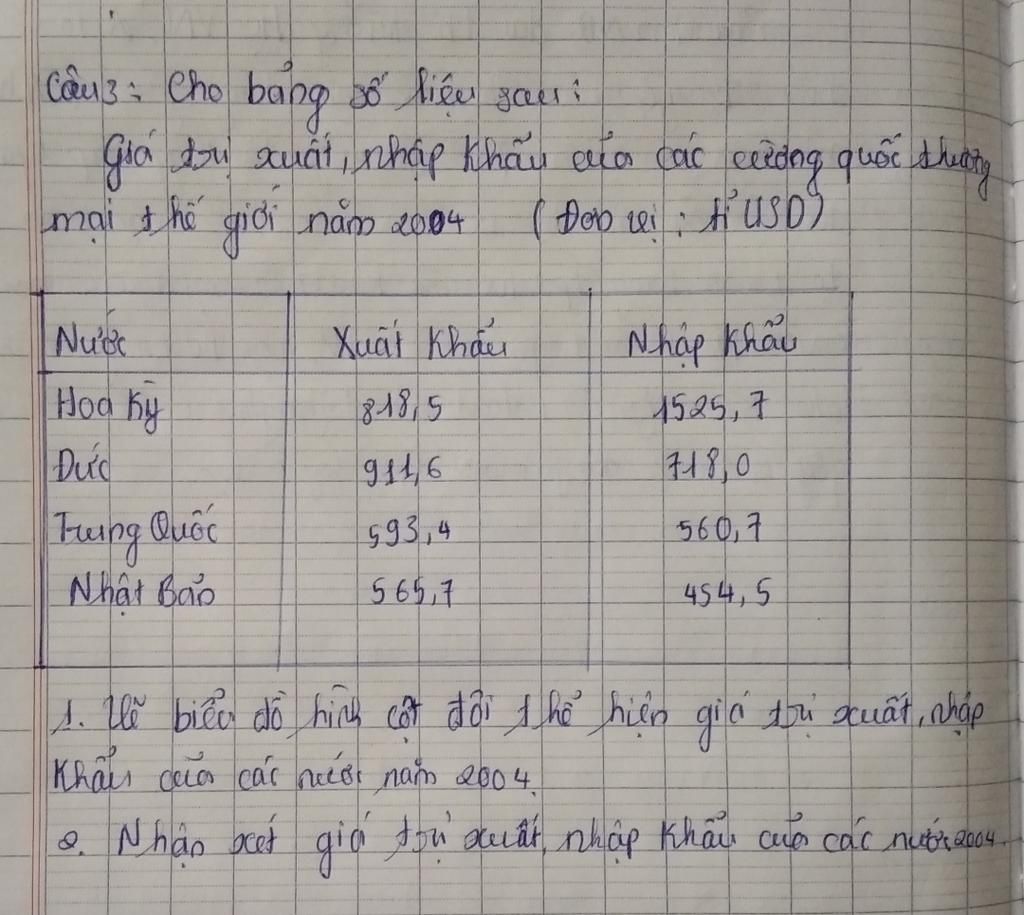 Câu 3: Cho bảng số liệu sau:
Giá trị xuất, nhập khẩu của các cường quốc thương
mại thế giới năm 2004 (Đơn vị: tỉ USD)
Nước Xuất khẩu Nhập khẩu
Hoa Kỳ 818,5 1525,7
Đức 911,6 718,0
Trung Quốc 593,4 560,7
Nhật Bản 565,7 454,5
1. Vẽ biểu đồ hình cột đôi thể hiện giá trị xuất, nhập
khẩu của các nước năm 2004.
2. Nhận xét giá trị xuất, nhập khẩu của các nước 2004.